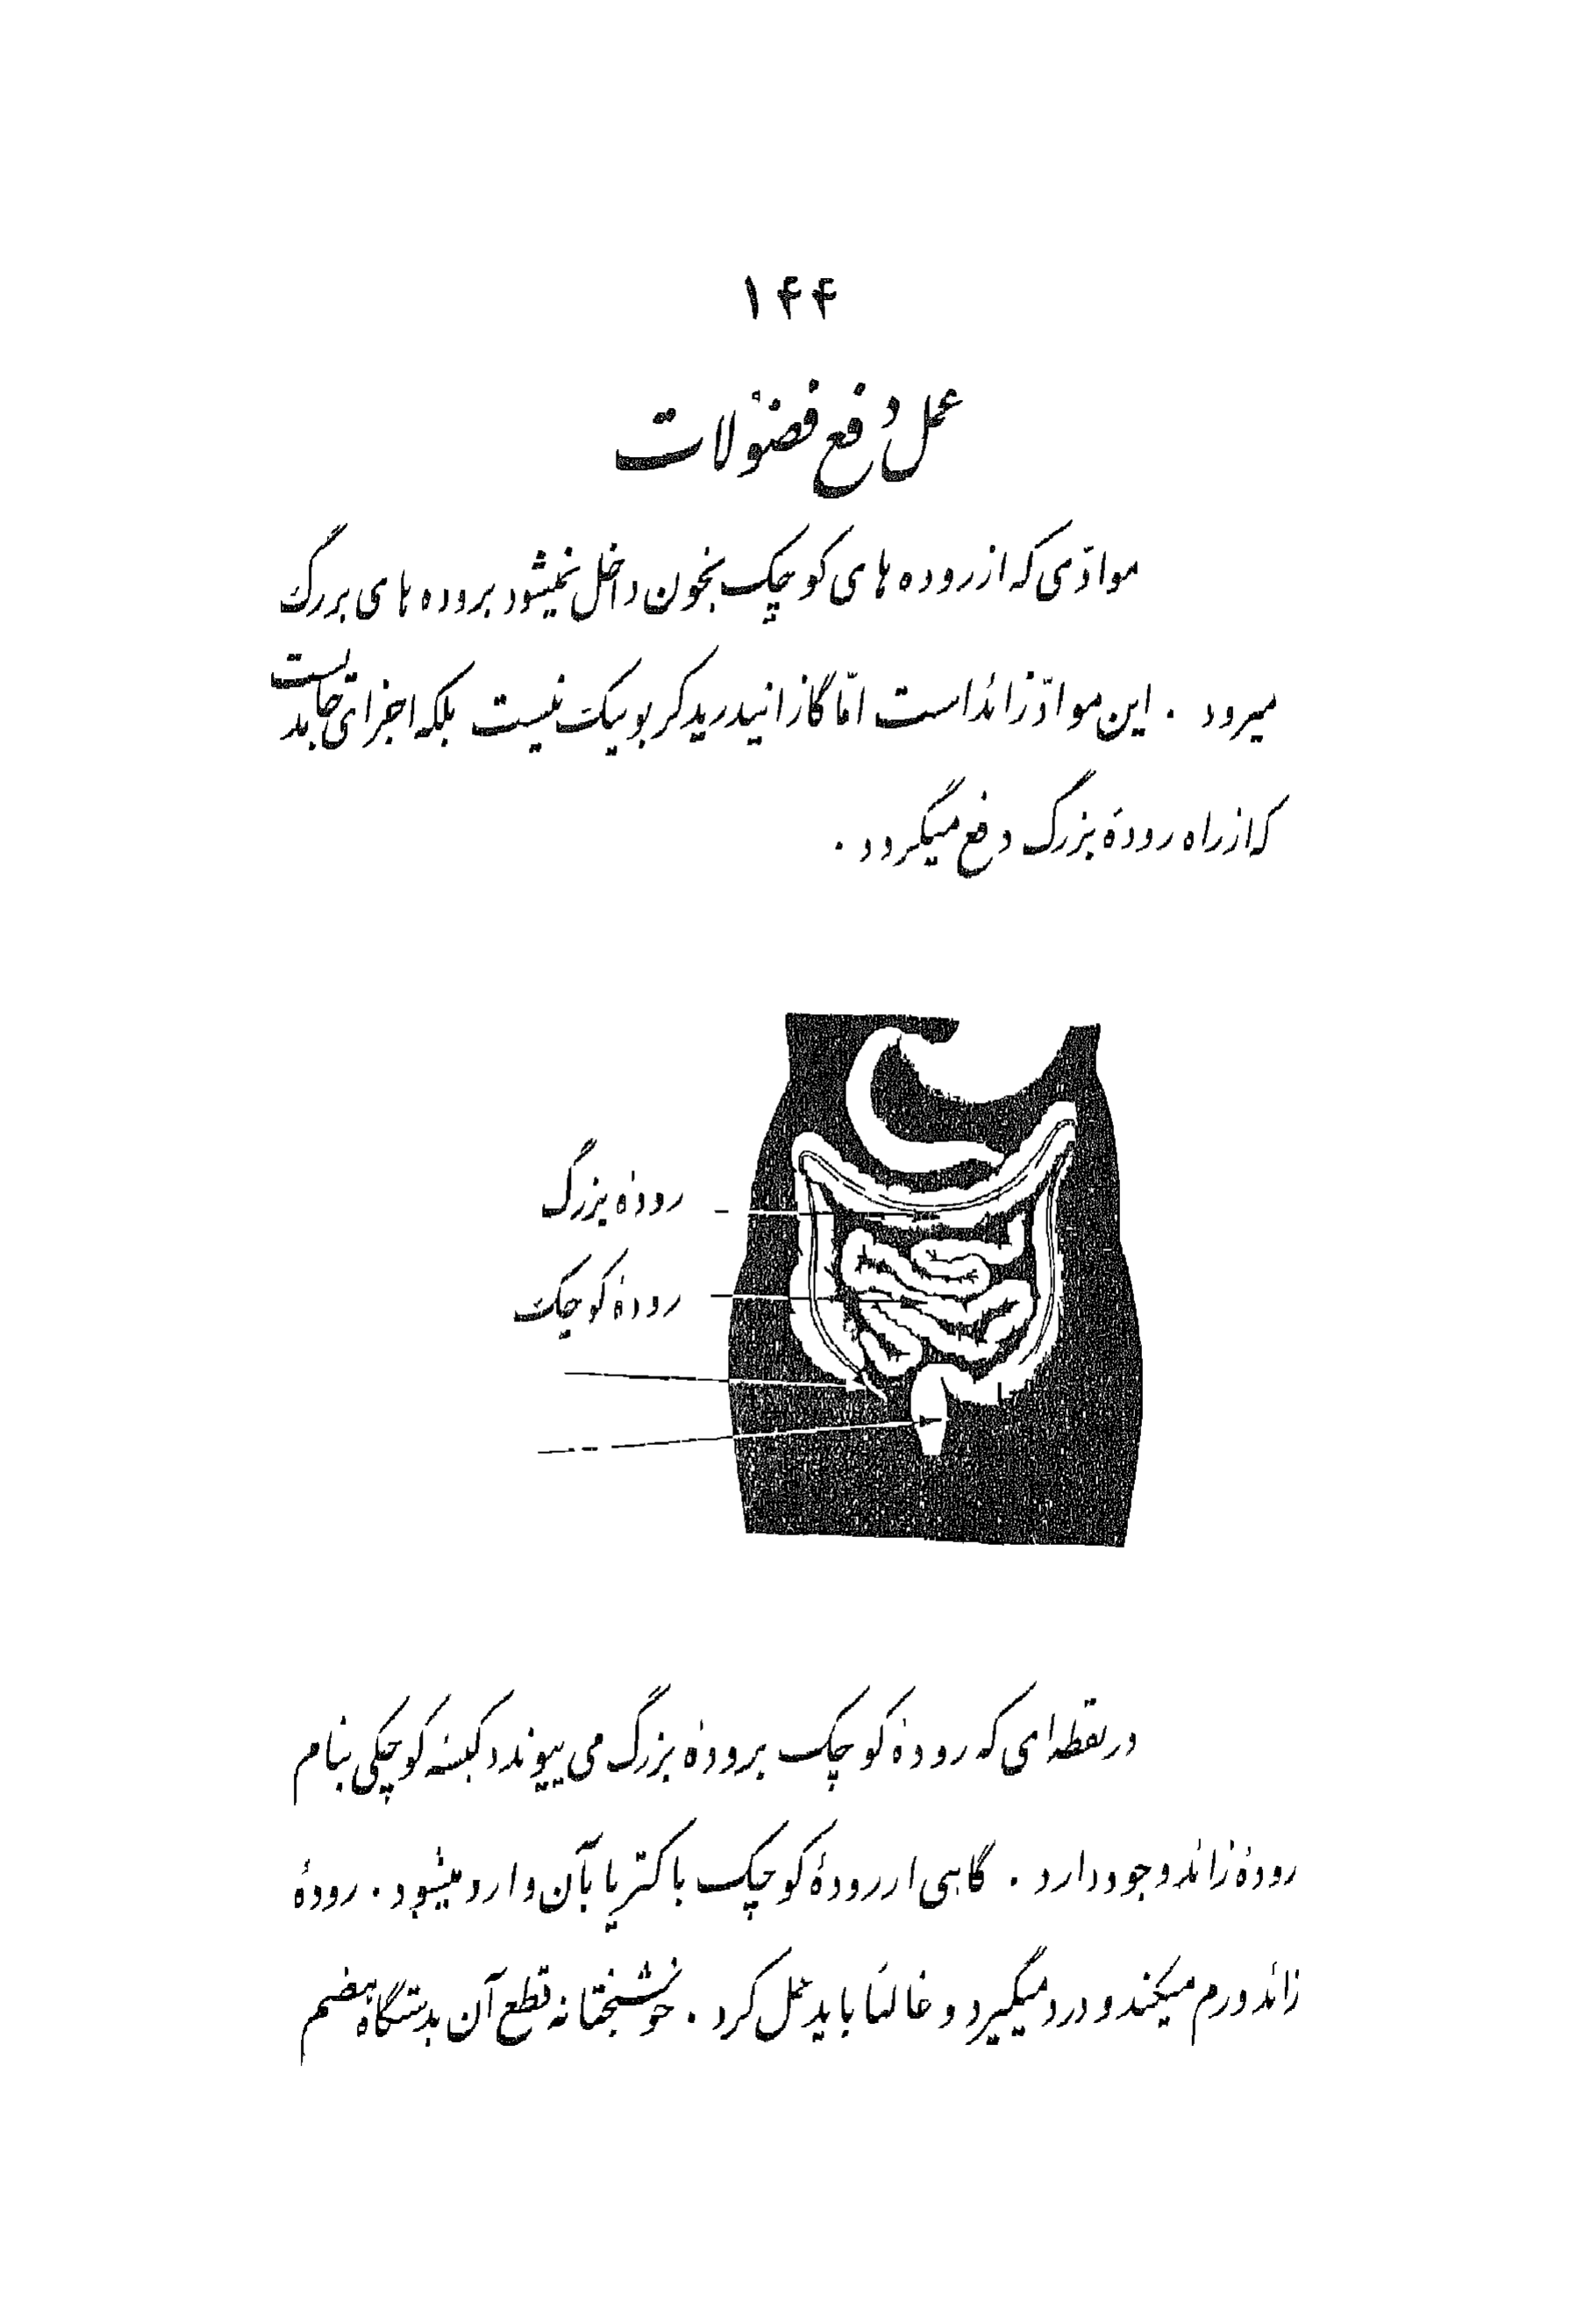 ۱۴۴
عمل دفع فضولات
موادّی که از روده های کوچک بخون داخل نمیشود بروده های بزرگ
میرود . این موادّ زائد است امّا گاز انیدرید کربونیک نیست بلکه اجزای جامدیست
که از راه رودهٔ بزرگ دفع میگردد .
رودهٔ بزرگ
رودهٔ کوچک
در نقطه ای که رودهٔ کوچک برودهٔ بزرگ می پیوندد کیسهٔ کوچکی بنام
رودهٔ زائد وجود دارد . گاهی از رودهٔ کوچک باکتریا بآن وارد میشود . رودهٔ
زائد ورم میکند و درد میگیرد و غالباً باید عمل کرد . خوشبختانه قطع آن بدستگاه هضم